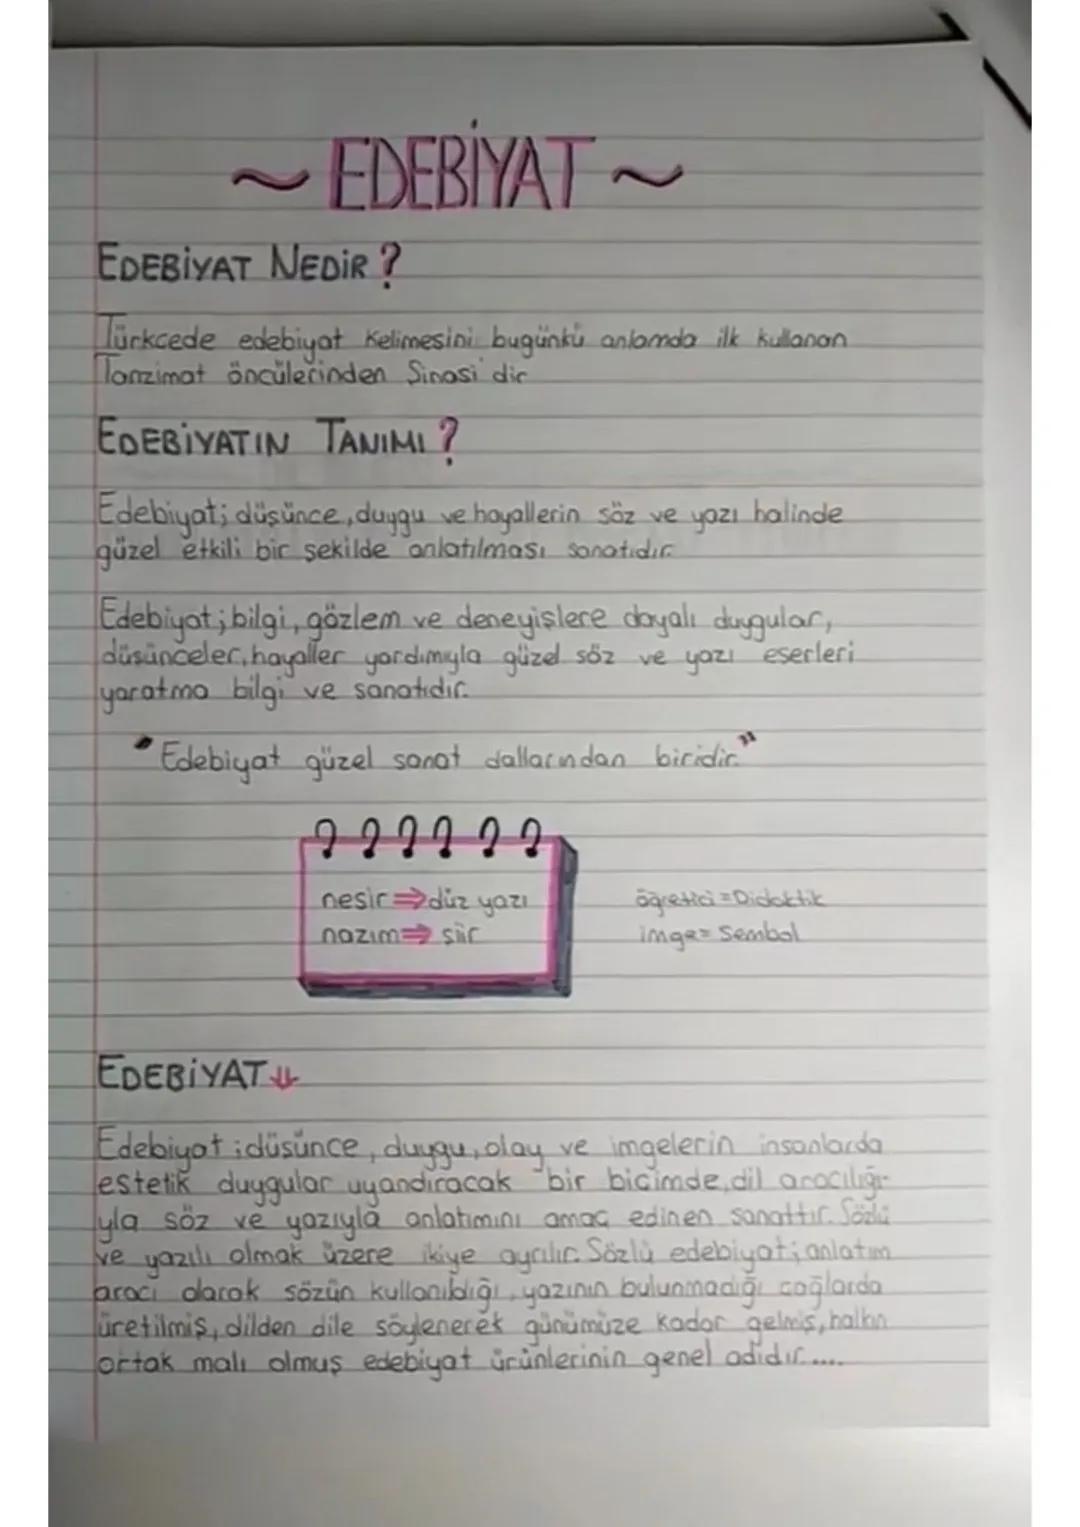 ~ EDEBİYAT ~
EDEBİYAT NEDİR?
Türkcede edebiyat kelimesini bugünkü anlamda ilk kullanan
Tanzimat öncülerinden Şinasi'dir
EDEBİYATIN TANIMI?
Edebiyat; düşünce, duygu ve hayallerin söz ve yazı halinde
güzel etkili bir şekilde anlatılması sanatıdır.
Edebiyat; bilgi, gözlem ve deneyişlere dayalı duygular,
düşünceler, hayaller yardımıyla güzel söz ve yazı eserleri
yaratma bilgi ve sanatıdır.
"Edebiyat güzel sanat dallarından biridir."
nesir ⇒ düz yazı
nazım ⇒ şiir
öğretici = Didaktik
imge = Sembol
EDEBİYAT ⇓
Edebiyat; düşünce, duygu, olay ve imgelerin insanlarda
estetik duygular uyandıracak bir biçimde, dil aracılığı-
yla söz ve yazıyla anlatımını amaç edinen sanattır. Sözlü
ve yazılı olmak üzere ikiye ayrılır. Sözlü edebiyat; anlatım
aracı olarak sözün kullanıldığı, yazının bulunmadığı çağlarda
üretilmiş, dilden dile söylenerek günümüze kadar gelmiş, halkın
ortak malı olmuş edebiyat ürünlerinin genel adıdır.....